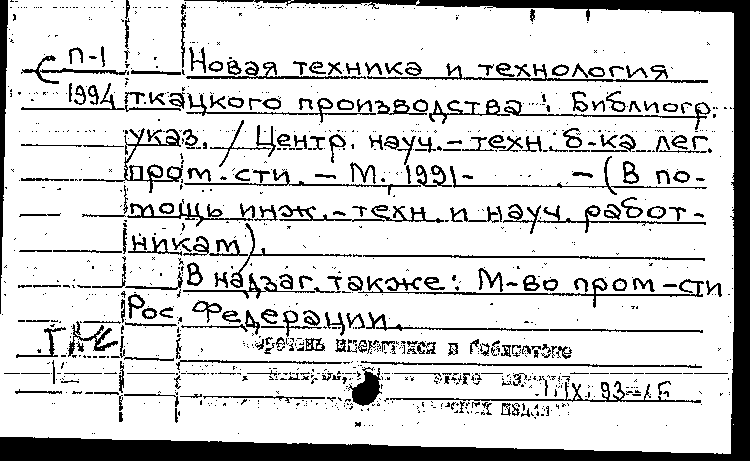 П-1 Новая техника и технология
1994 ткацкого производства : Библиогр.
указ. / Центр. науч.-техн. б-ка лег.
пром-сти. - М., 1991-        . - (В по-
мощь инж.-техн. и науч. работ-
никам).
В надзаг. также: М-во пром-сти
Рос. Федерации.
имеющихся в библиотеке
этого
IX. 93